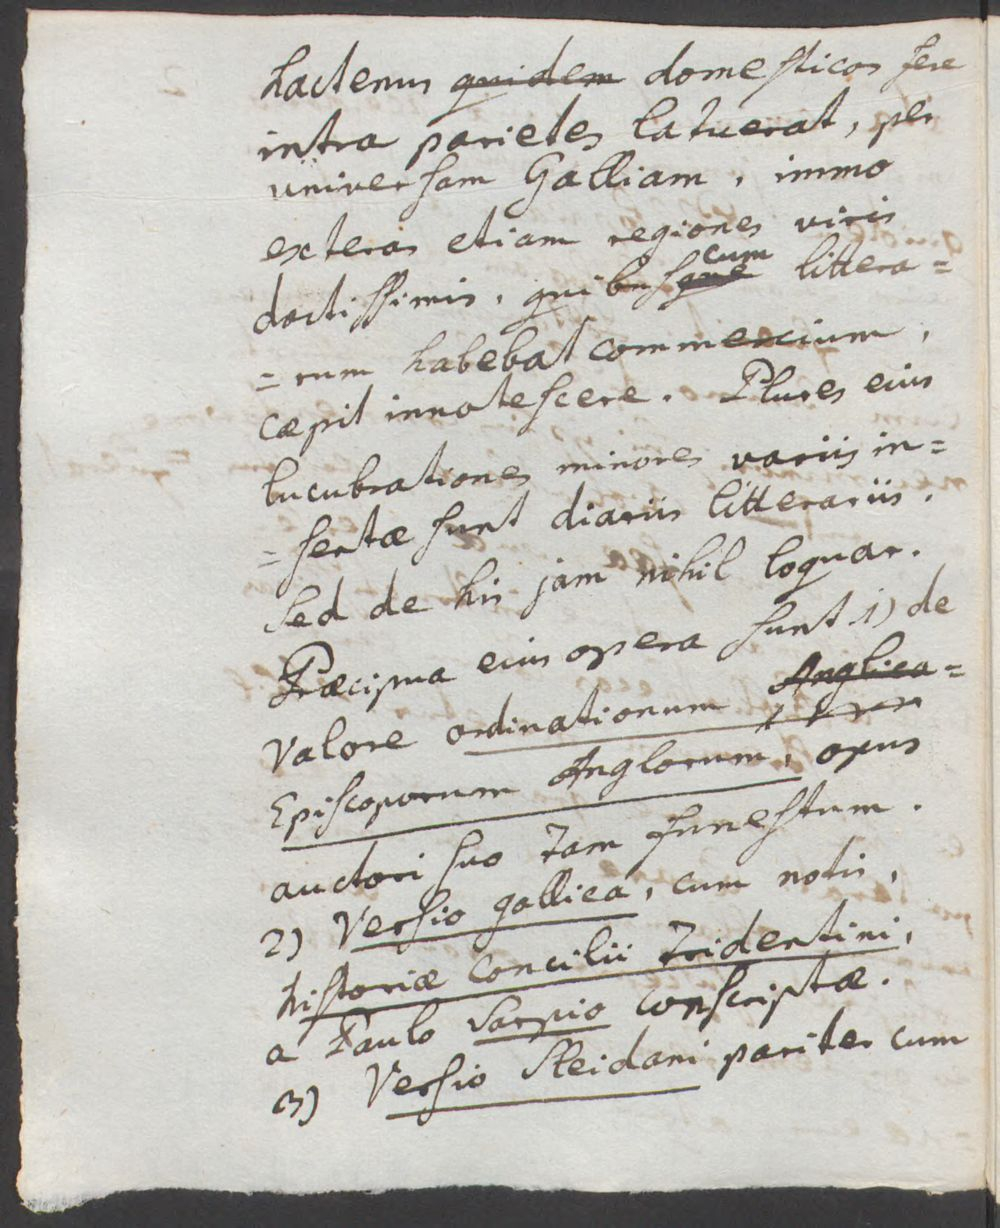 hactenus quidem domesticos fere
intra parietes latuerat, per
universam Galliam, immo
exteras etiam regiones viris
doctissimis, quibusque cum littera=
=rum habebat commercium,
cæpit innotescere. Plures eius
lucubrationes minores variis in=
=sertæ sunt diariis litterariis.
Sed de his jam nihil loquar.
Præcipua eius opera sunt 1) de
Valore ordinationum Anglica=
Episcoporum Anglorum, opus
auctori suo tam funestum.
2) Versio gallica, cum notis,
historiæ Concilii Tridentini,
a Paulo Sarpio conscriptæ.
3) Versio Sleidani pariter cum